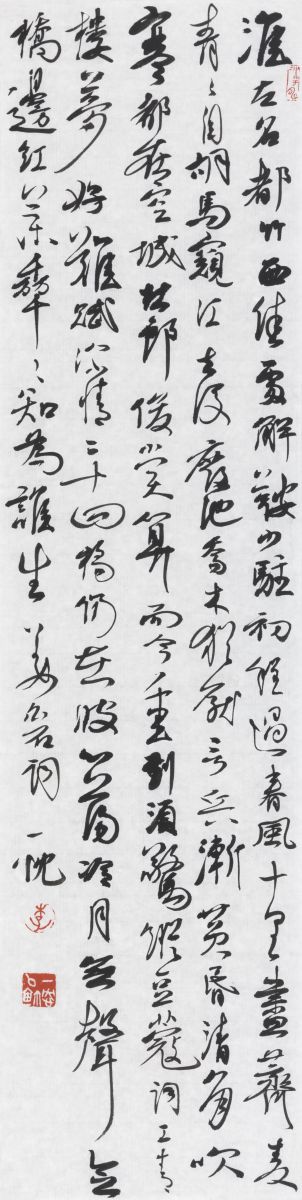 淮左名都竹西佳處解鞍少駐初程過春風十里盡薺麥
青〻自胡馬窺江去後廢池喬木猶厭言兵漸黃昏清角吹
寒都在空城杜郎俊賞算而今重到須驚縱豆蔻詞工青
樓夢好難賦深情二十四橋仍在波心蕩冷月無聲念
橋邊紅藥年〻知為誰生 姜白石詞 一忱
李